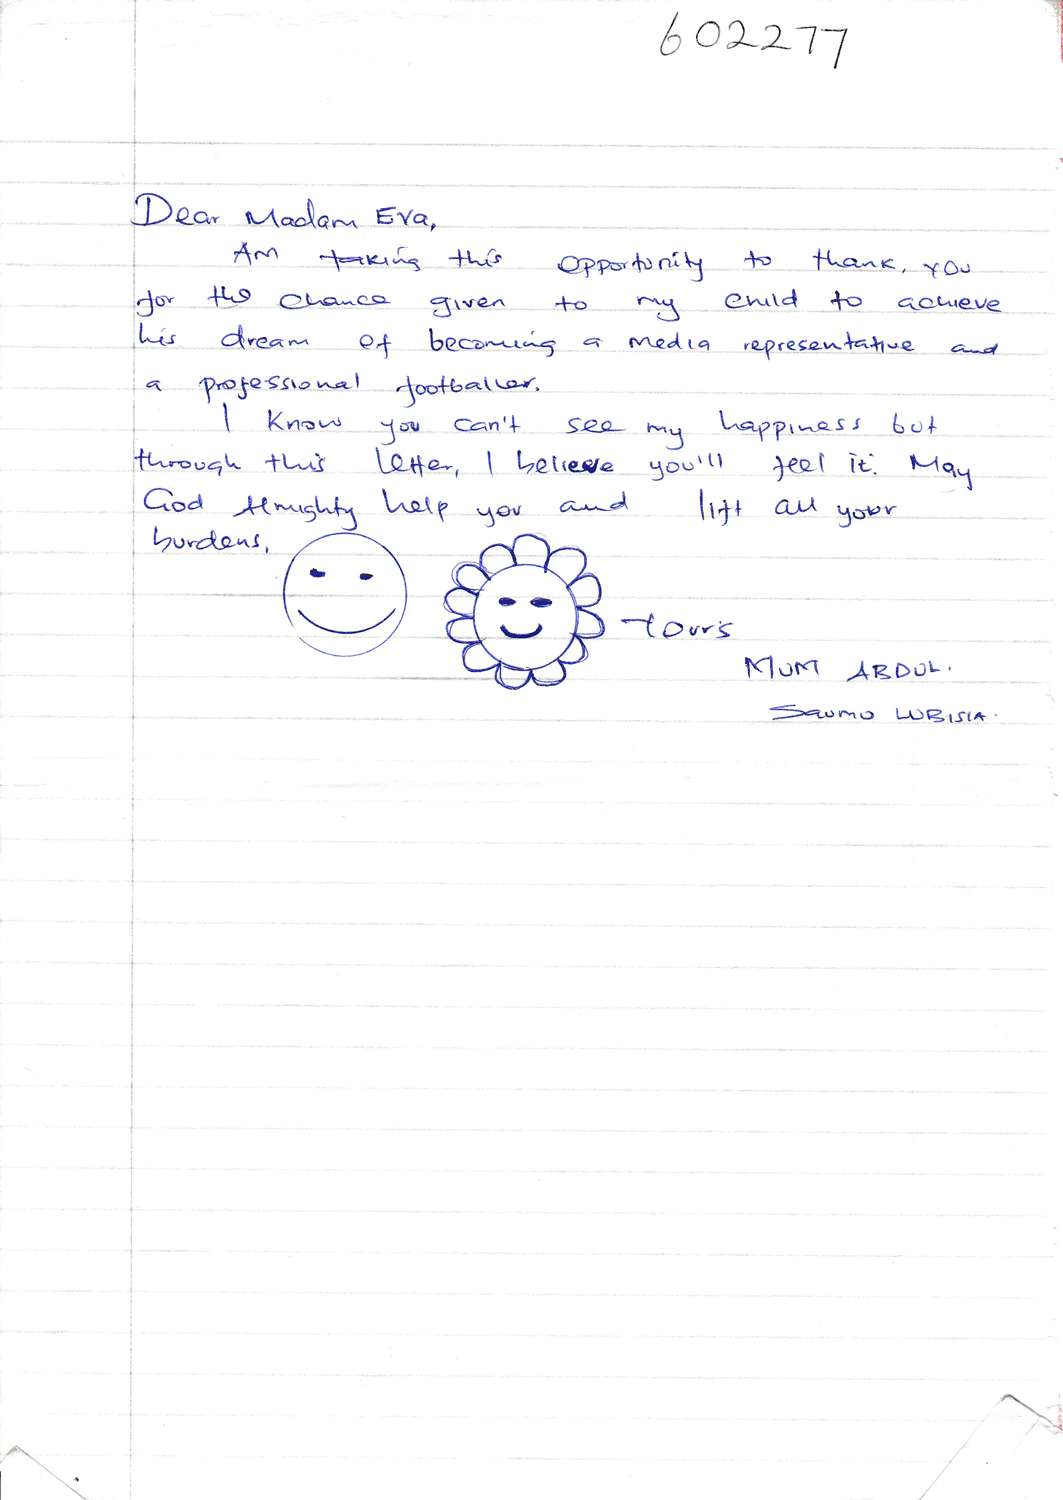 602277
Dear Madam Eva,
Am taking this opportunity to thank, you
for the chance given to my child to achieve
his dream of becoming a media representative and
a professional footballer.
I know you can't see my happiness but
through this letter, I believe you'll feel it. May
God Almighty help you and lift all your
burdens,
Yours
MUM ABDUL.
Saumu LUBISIA.